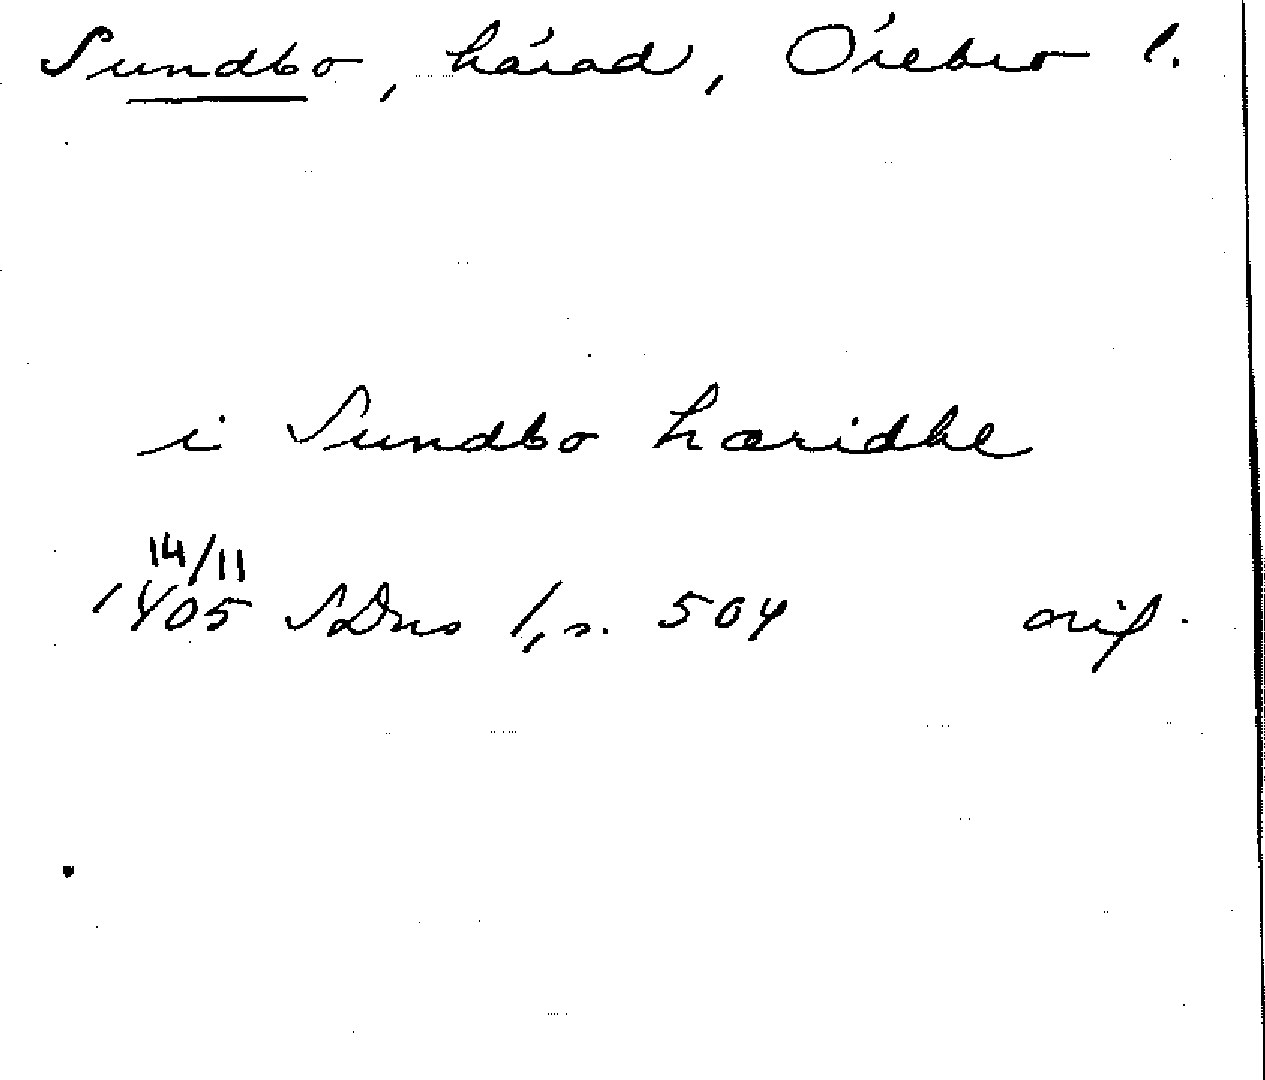 Sundbo, härad, Örebro l.
i Sundbo hæridhe
14/11
1405 SDns 1, s. 504 orig.